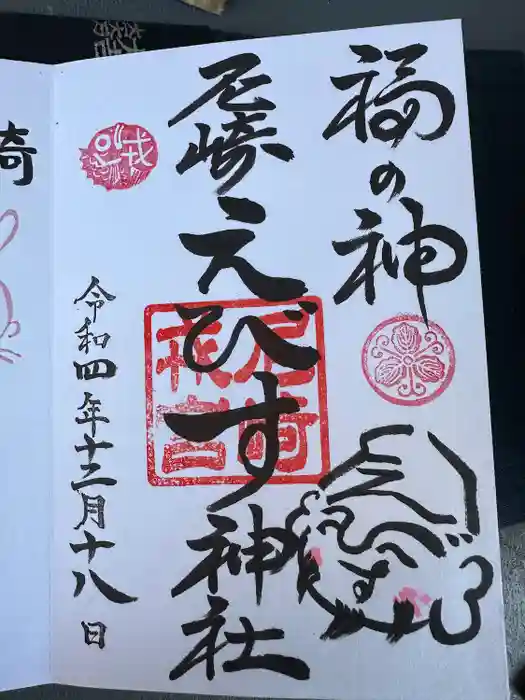 福の神
尼崎えびす神社
令和四年十二月十八日
尼崎
戎宮
えびす
崎